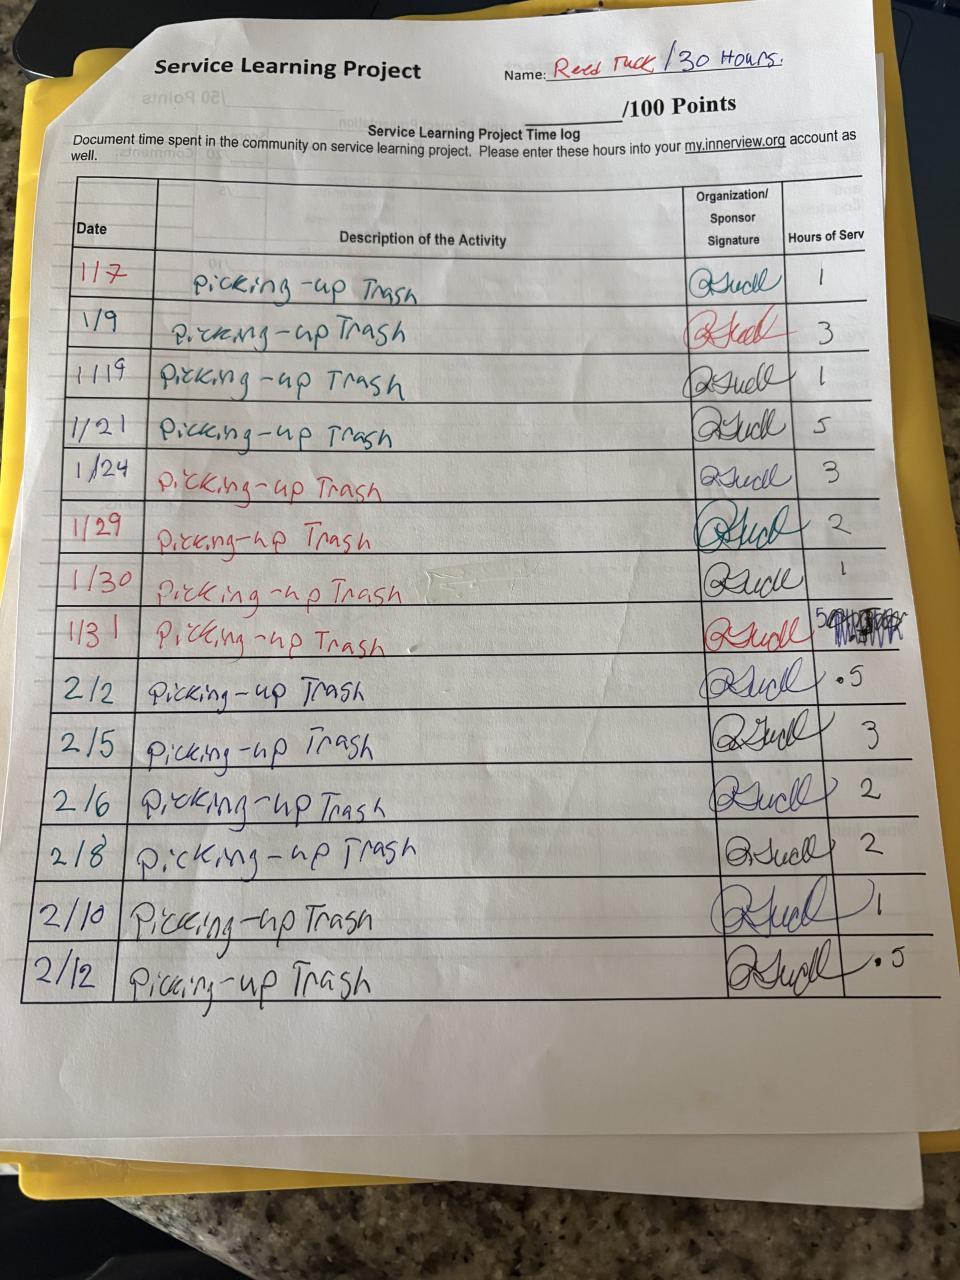 Service Learning Project
Name: Reed Tuck /30 Hours.
/100 Points
Service Learning Project Time log
Document time spent in the community on service learning project. Please enter these hours into your my.innerview.org account as
well.
Date Description of the Activity Organization/ Sponsor Signature Hours of Serv
1/7 Picking-up Trash 1
1/9 Picking-up Trash 3
1/19 Picking-up Trash 1
1/21 Picking-up Trash 5
1/24 Picking-up Trash 3
1/29 Picking-up Trash 2
1/30 Picking-up Trash 1
1/31 Picking-up Trash 5
2/2 Picking-up Trash .5
2/5 Picking-up Trash 3
2/6 Picking-up Trash 2
2/8 Picking-up Trash 2
2/10 Picking-up Trash 1
2/12 Picking-up Trash .5